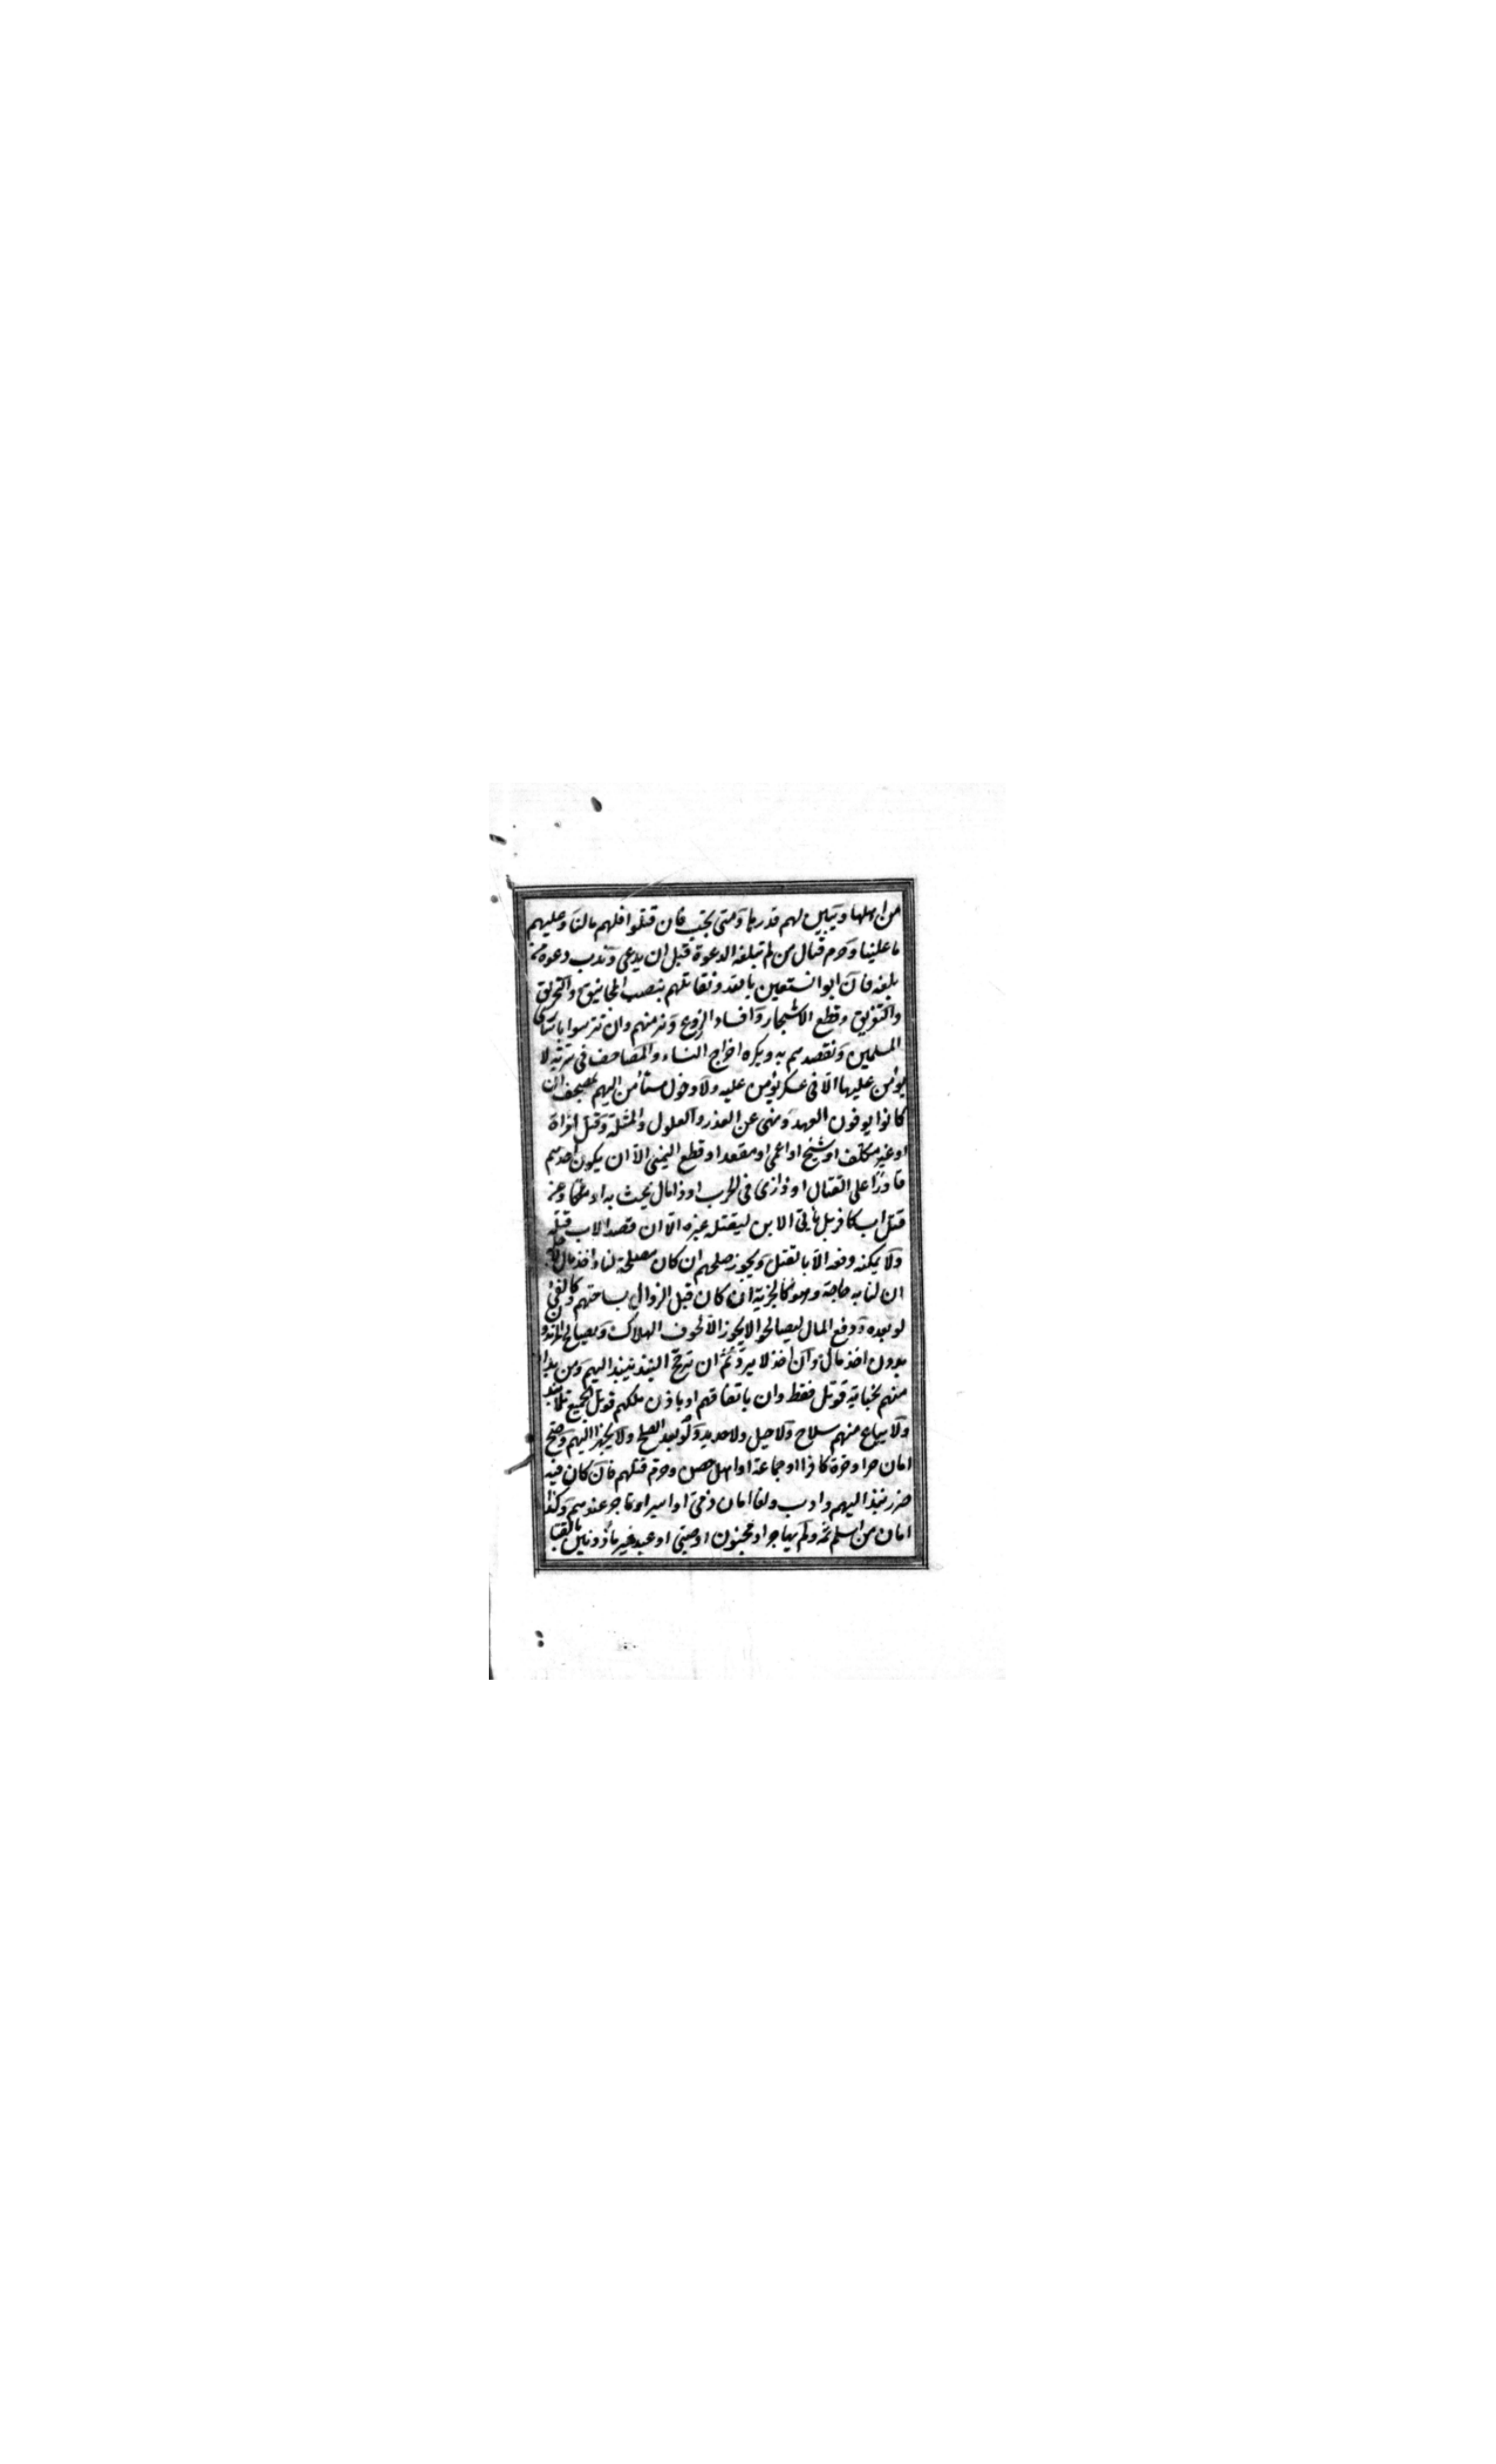 من اهلها ويبين لهم قدرها ومتى تجب فان قبلوا فلهم مالنا وعليهم
ما علينا وحرم قتال من لم تبلغه الدعوة قبل ان يدعى وندب دعوة من
بلغته فان ابوا نستعين بالله ونقاتلهم بنصب المجانيق والتحريق
والتغريق وقطع الاشجار وافساد الزروع ونرميهم وان تترسوا باسارى
المسلمين ونقصدهم به ويكره اخراج النساء والمصاحف في سرية لا
يؤمن عليها الا في عسكر يؤمن عليه ولا دخول مستأمن اليهم بمصحف ان
كانوا يوفون العهد ونهى عن الغدر والغلول والمثلة وقتل امراة
او غير مكلف او شيخ او اعمى او مقعد او قطع اليمنى الا ان يكون احدهم
قادرا على القتال او ذا رأى في الحرب او ذا مال يحث به او ملكا وعن
قتل اب كافر بل يأبى الابن ليقتله غيره الا ان قصد الاب قتله
ولا يمكنه دفعه الا بالقتل ويجوز صلحهم ان كان مصلحة لنا واخذ مال لاجله
ان لنا به حاجة وهو كالجزية ان كان قبل النزول بساحتهم وكالفئ
لو بعده ودفع المال ليصالحوا لا يجوز الا لخوف الهلاك ويصالح المرتدون
بدون اخذ مال وان اخذ لا يرد ثم ان ترجح النبذ نبذ اليهم ومن بدا
منهم بخيانة قوتل فقط وان باتفاقهم او باذن ملكهم قوتل الجميع بلا نبذ
ولا يباع منهم سلاح ولا خيل ولا حديد ولو بعد الصلح ولا يجهز اليهم وصح
امان حر او حرة كافرا او جماعة او اهل حصن وحرم قتلهم فان كان فيه
ضرر نبذ اليهم وادب ولغا امان ذمى او اسير او تاجر عندهم وكذا
امان من اسلم ثمه ولم يهاجر او مجنون او صبي او عبد غير مأذونين بالقتا